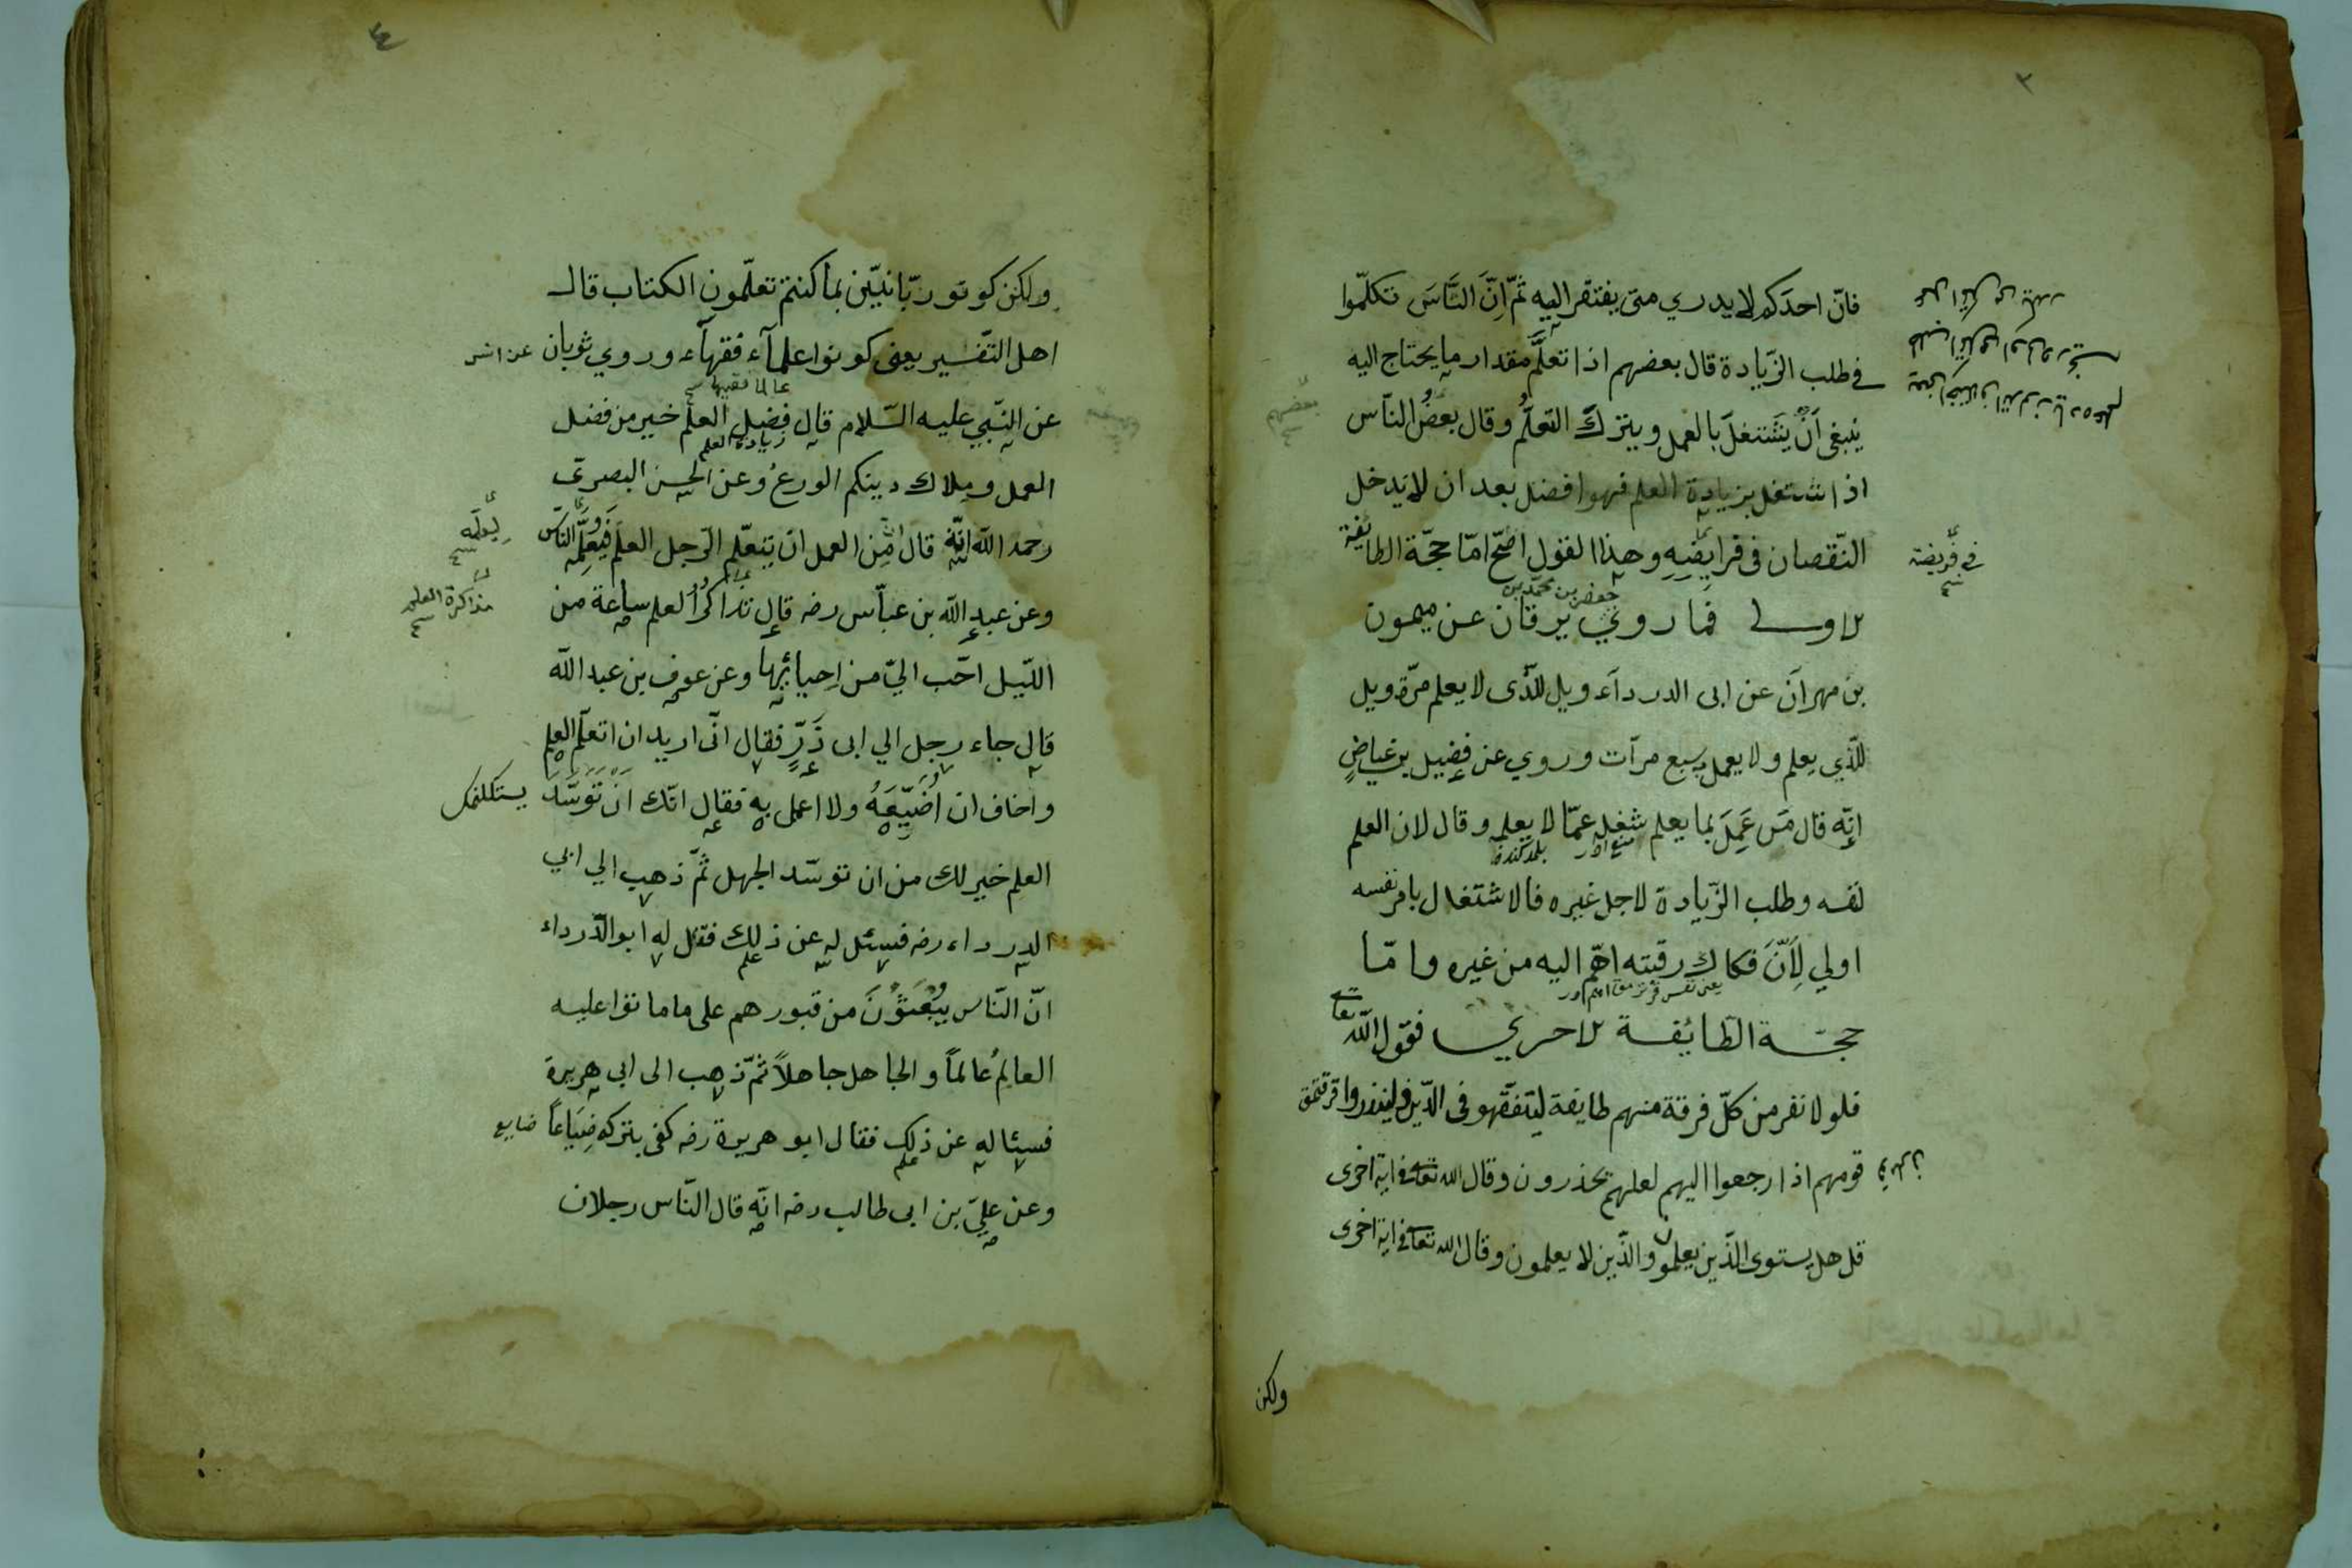 ٣
فانّ احدَكم لا يدري متى يفتقر اليه ثمّ اِنّ النَّاسَ تكلّموا
في طلب الزّيادة قال بعضهم اذا تعلّم مقدار ما يحتاج اليه
ينبغى اَنْ يَشتغلَ بالعمل ويتركَ التعلُّم وقال بعضُ النّاس
اذا شتغل بزيادة العلم فهوا فضل بعد ان لا يدخل
النّقصان فى فرايضِهِ وهذا القول اصّح امّا حجّة الطايفة
في فريضة
جعفر بن محمّد بن
الاولى فما روي برقان عن ميمون
بن مهرانَ عن ابى الدرداَء ويل للّذى لا يعلم مرّة ويل
للّذي يعلم ولا يعمل سبع مرّات وروي عن فضيل بن عياضٍ
انّه قال مَن عَمِلَ بما يعلم شغل عمّا لا يعلم وقال لان العلم
لنفسه وطلب الزّيادة لاجل غيره فالاشتغال بامر نفسه
اولي لِأَنَّ فكاك رقبته اهّم اليه من غيره وامّا
حجّة الطّائفة الاخري فقول اللّه تعا
فلولا نفر من كلّ فرقة منهم طايفة ليتفقّهو فى الدّين ولينذروا
قومهم اذا رجعوا اليهم لعلهم يحذرون وقال الله تعا فى اية اخرى
قل هل يستوى الذّين يعلمون والذّين لا يعلمون وقال الله تعا فى اية اخرى
ولكن
٤
ولكن كونو ربّانيّين بما كنتم تعلّمون الكتاب قال
اهل التّفسير يعنى كونوا علمآء فقهآء وروي ثوبان
عالما فقيها
عن النّبي عليه السّلام قال فضل العلم خير من فضل
زيادة العلم
العمل وملاك دينكم الورعُ وعن الحسن البصرى
رحمه اللّه انّه قال من العمل ان يتعلّم الرّجل العلم فيعلّمه النّاس
ليعلّمه
وعن عبد اللّه بن عبّاس رضه قال تذاكر العلم ساعة من
مذاكرة العلم
اللّيل احّب اليّ من اِحيائها وعن عوف بن عبد اللّه
قال جاء رجل الي ابى ذَرٍّ فقال انّى اريد ان اتعلّم العلم
واخاف ان اُضَيّعَهُ ولا اعمل به فقال انّك اَنْ تَوَسَّدَ
العلم خير لك من ان توسّد الجهل ثمّ ذهب الي ابي
الدرداء رضه فسئل له عن ذلك فقل له ابو الدّرداء
انّ النّاس يُبْعَثُونَ من قبورهم على ما ماتوا عليه
العالِمُ عالماً والجاهل جاهلاً ثمّ ذهب الى ابى هريرة
فسئا له عن ذلك فقال ابو هريرة رضه كفى بتركه ضِيَاعاً ضايع
وعن عليّ بن ابى طالب رضه انّه قال النّاس رجلان